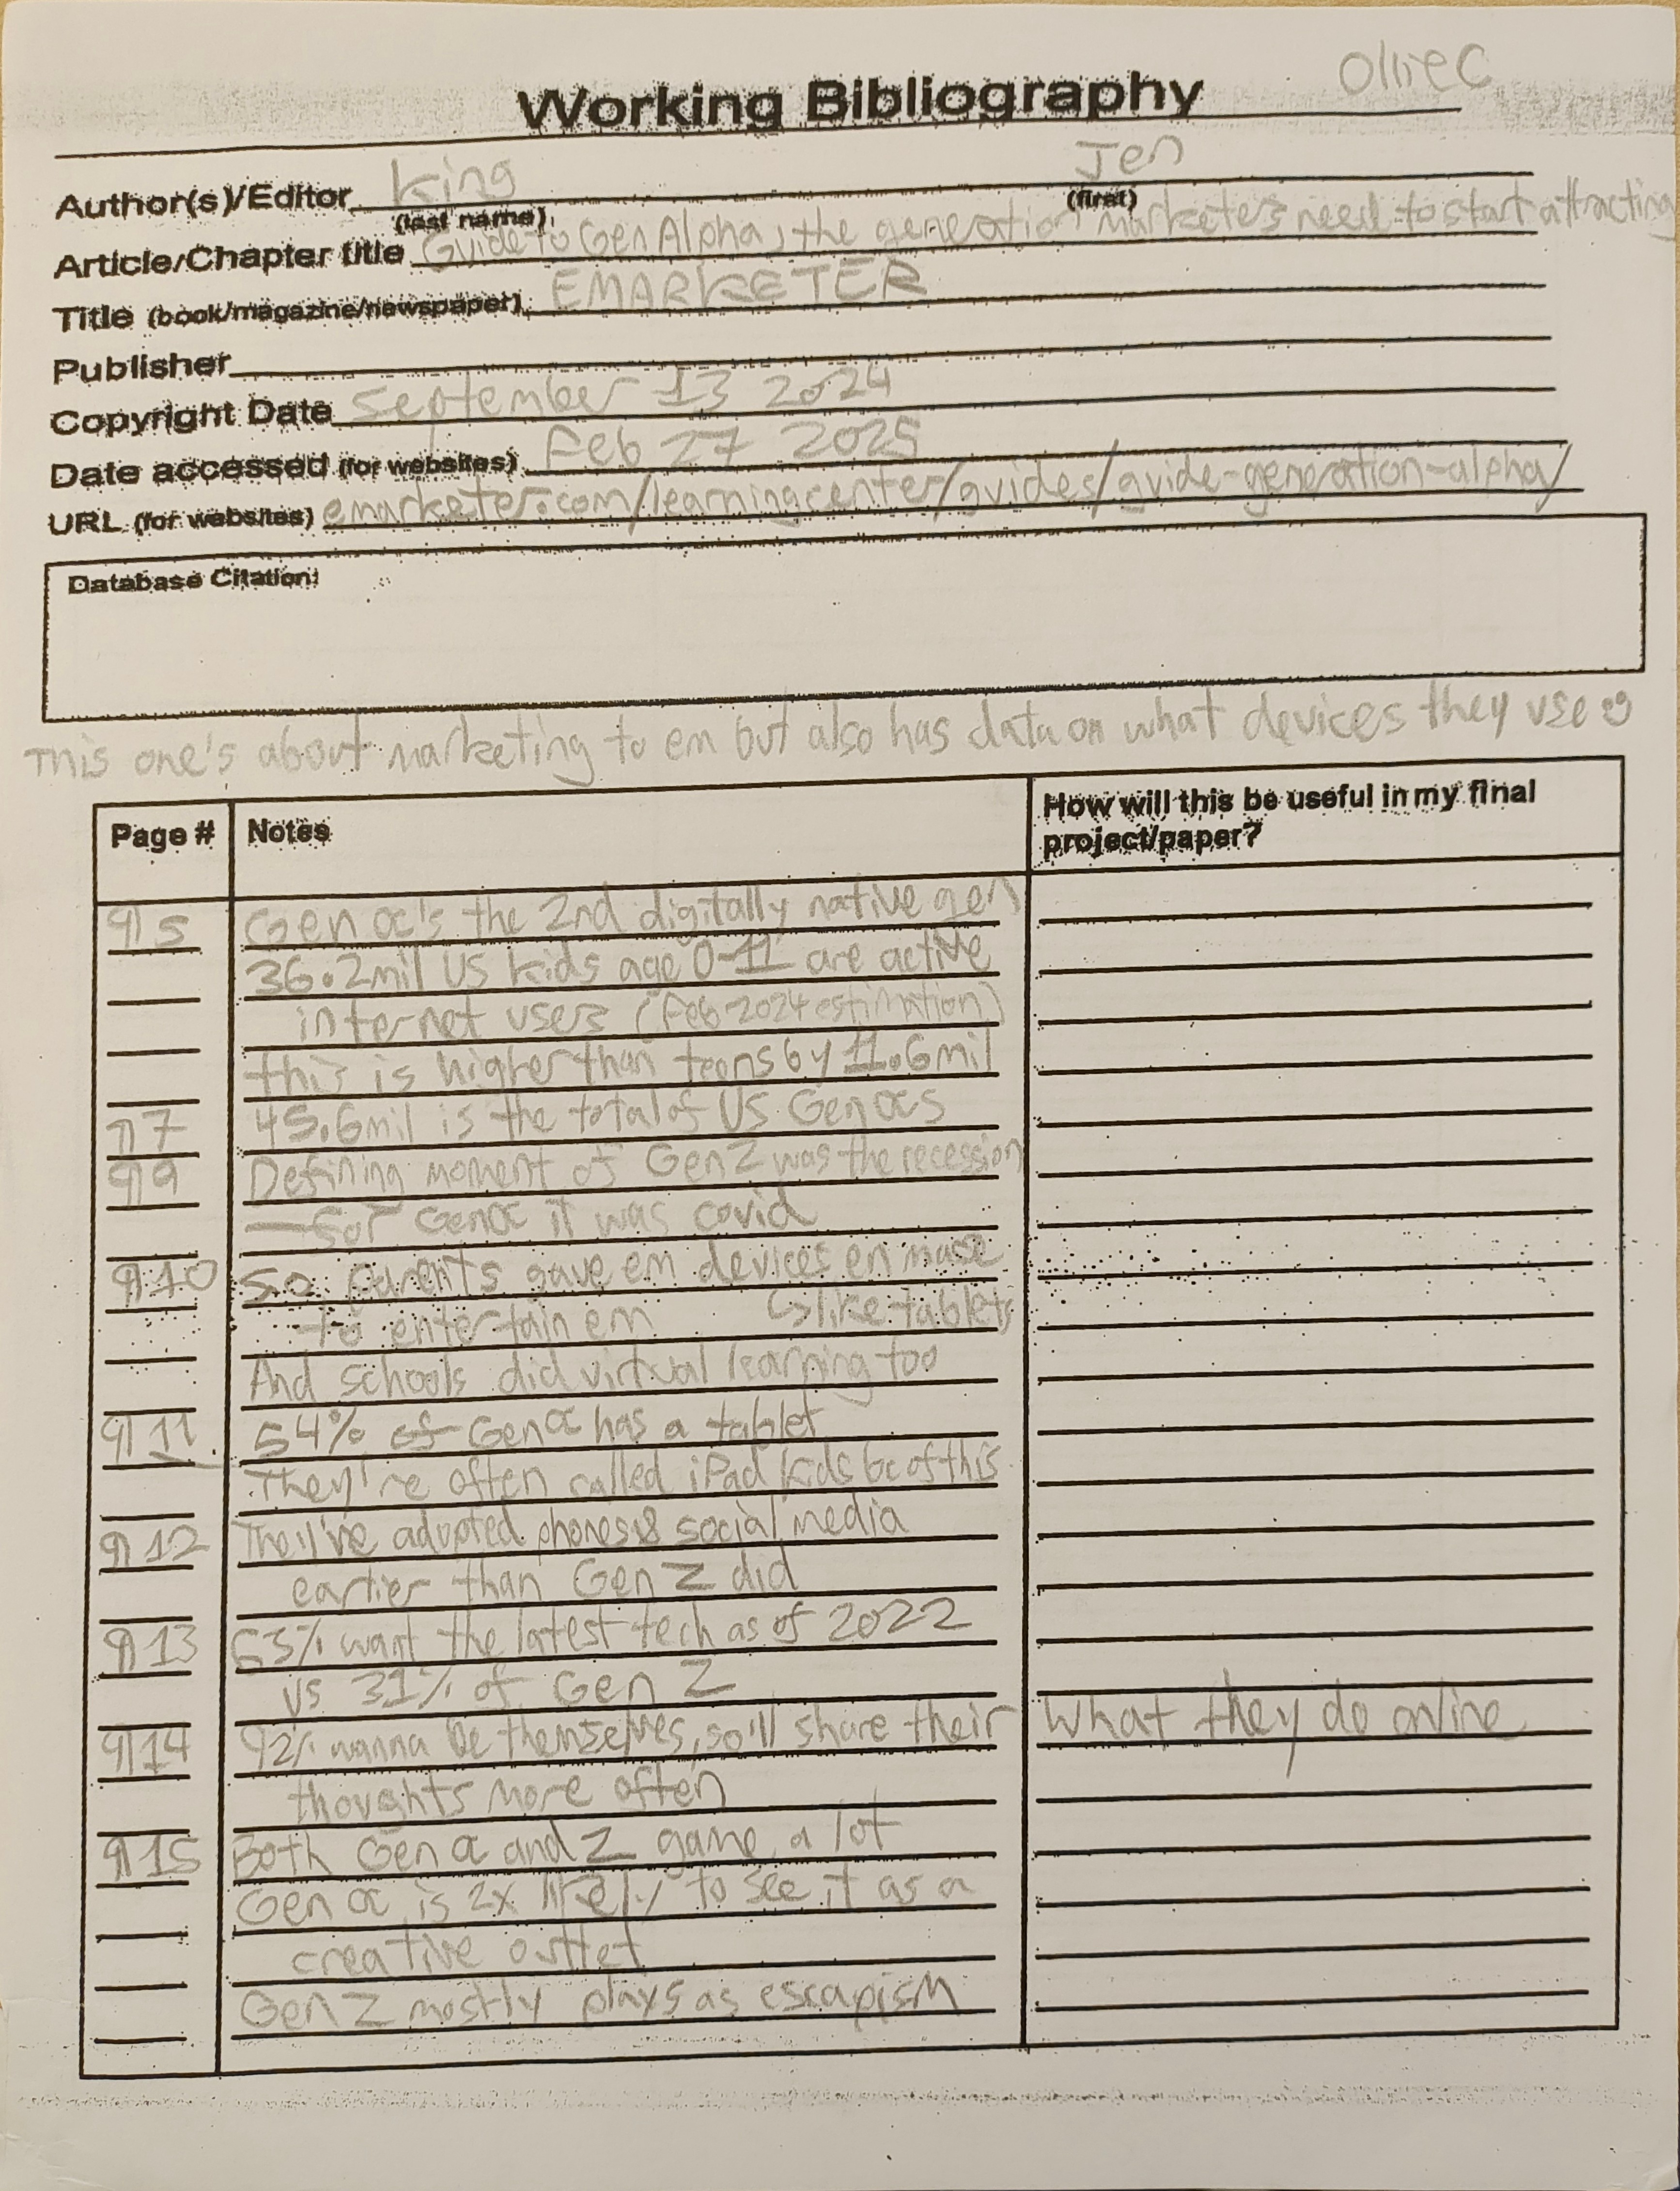 Ollie C
Working Bibliography
Author(s)/Editor King Jen
(last name) (first)
Article/Chapter title Guide to Gen Alpha, the generation marketers need to start attracting
Title (book/magazine/newspaper) EMARKETER
Publisher
Copyright Date September 13 2024
Date accessed (for websites) Feb 27 2025
URL (for websites) emarketer.com/learningcenter/guides/guide-generation-alpha/
Database Citation:
This one's about marketing to em but also has data on what devices they use
Page # Notes How will this be useful in my final
project/paper?
¶5 Gen α's the 2nd digitally native gen
36.2mil US kids age 0-11 are active
internet users (Feb 2024 estimation)
this is higher than teens by 11.6mil
¶7 45.6mil is the total of US Gen αs
¶9 Defining moment of Gen Z was the recession
—for Gen α it was covid
¶10 So parents gave em devices en mase
to entertain em ↳like tablets
And schools did virtual learning too
¶11 54% of Gen α has a tablet
They're often called iPad kids bc of this
¶12 They've adopted phones & social media
earlier than Gen Z did
¶13 63% want the latest tech as of 2022
vs 31% of Gen Z
¶14 92% wanna be themselves, so'll share their What they do online
thoughts more often
¶15 Both Gen α and Z game a lot
Gen α is 2x likely to see it as a
creative outlet
Gen Z mostly plays as escapism